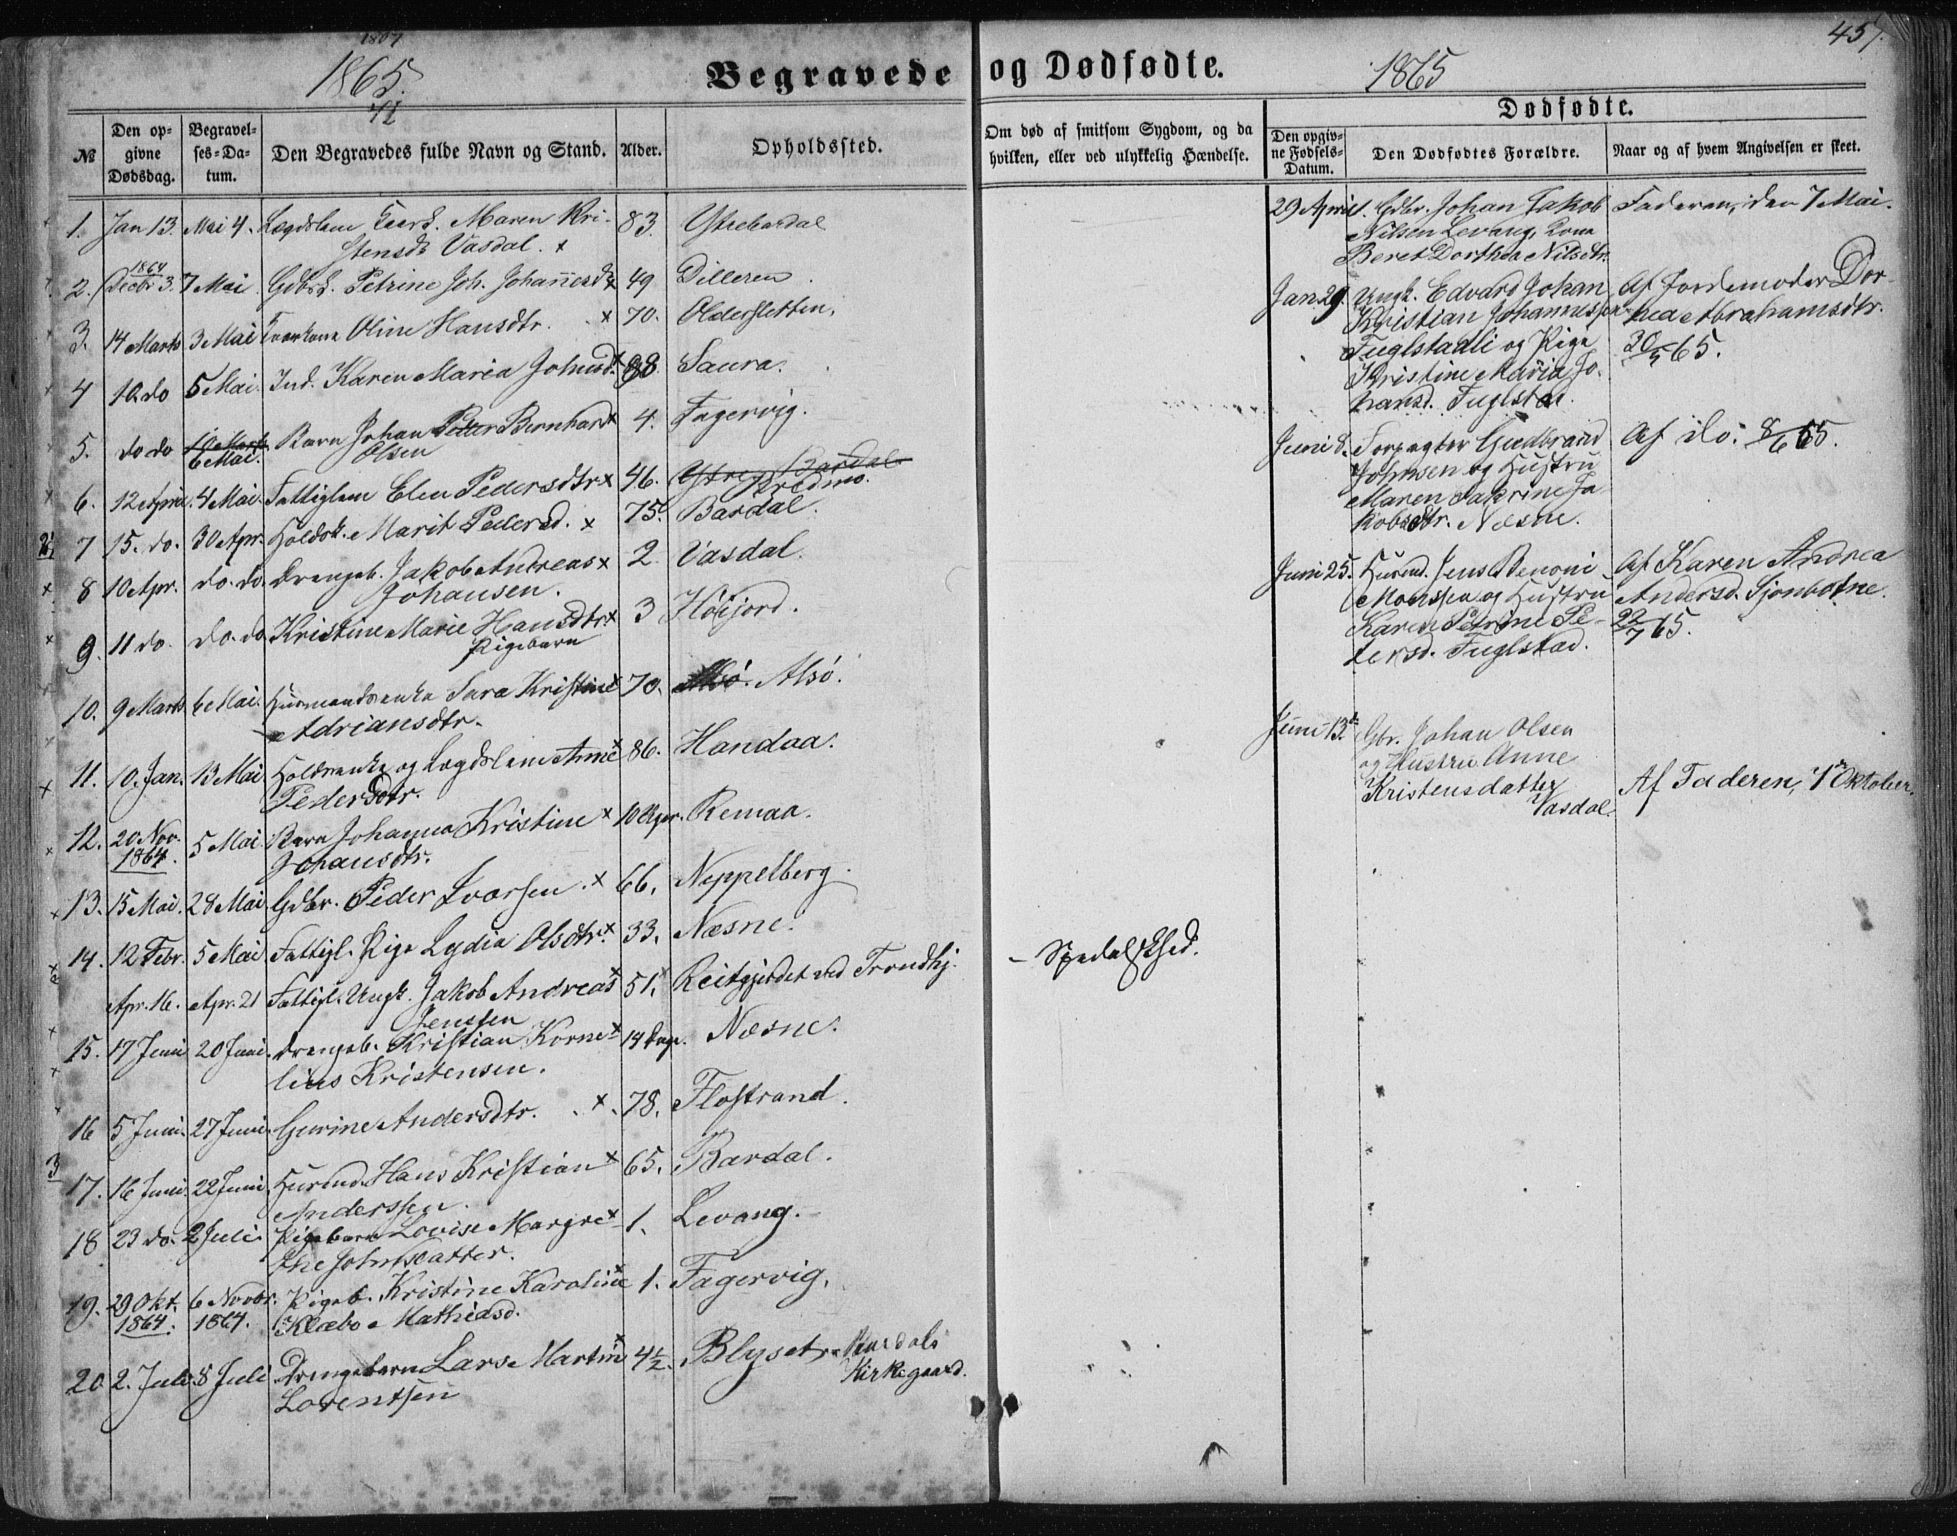 1865.
Begravede og Dødfødte.
1865
457.
№
Den opgivne Dødsdag.
Begravelses-Datum.
Den Begravedes fulde Navn og Stand.
Alder.
Opholdssted.
Om død af smitsom Sygdom, og da
hvilken, eller ved ulykkelig Hændelse.
Dødfødte.
Den opgivne Fødsels-Datum.
Den Dødfødtes Forældre.
Naar og af hvem Angivelsen er skeet.
1. Jan 13. Mai 4. Lægdslem Maren Kri- 83.
stensdtr Vasdal. x
1864
2. Decbr 3. 7 Mai Gdbrk. Petrine Joh. Johannesd x 49 Dilleren
3. 14 Marts 3 Mai Oline Hansdtr. x 70. Oldersletten.
4 10. do 5 Mai. Ind. Karen Maria Johnsd. x 88. Saura.
5. do do 10 Marts 6 Mai. Barn Johan Peder Bernhard x 4. Fagervig.
Olsen
6. 12 April. 4 Mai. Fattiglem Elen Pedersdtr x 46. Ystre Bardal
7 15. do. 30 Apr. Holdsk. Marit Pedersd. x 75. Bardal.
8 10 Apr. do. do. Drengeb. Jakob Andreas x 2 Vasdal.
Johansen.
9. 11 do. do. do Kristine Marie Hansdtr x 3 Høifjord.
Pigebarn
10. 9 Marts 6 Mai. Husmandsenke Sara Kristine x 70. Alsø. Alsø.
Adriansdtr.
11. 10. Jan. 13 Mai Holdsenke og Lægdslem Anne x 86. Handaa.
Pedersdtr.
12. 20 Nov. 5 Mai. Barn Johanna Kristine x 10 Uger. Remaa.
1864. Johansdtr.
13. 15 Mai. 28 Mai. Gdbr. Peder Ivarsen. x 66. Neppelberg.
14. 12 Febr. 5 Mai Fattigl. Pige Lydia Olsdtr. x 33. Næsne.
Apr. 16. Apr. 21 Fattigl. Ungk. Jakob Andreas x 51. Reitgjerdet ved Trondhj. - Spedalskhed.
Jenssen
15. 17 Juni 20 Juni. Drengeb. Kristian Korne- x 14 Dage. Næsne.
lius Kristensen.
16 5 Juni. 27 Juni. Gurine Andersdtr. x. 78. Flostrand.
17. 16 Juni. 22 Juni. Husmd. Hans Kristian x 65. Bardal.
Anderssen.
18 23 do. 2 Juli. Pigebarn Lovise Margre- x 1. Levang.
the Johnsdatter.
19. 29 Okt. 6 Novbr. Pigeb. Kristine Karoline x 1. Fagervig.
1864. 1864. Klæbo Mathiasd.
20 2. Juli. 8 Juli Drengebarn Lars Martin x 4½. Blyset, Bardals
Lorentsen Kirkegaard.
29 April. Gdbr. Johan Jakob Faderen, den 7 Mai.
Nilsen Levang, Kone
Beret Dorthea Nilsdtr.
Jan 29. Ungk. Edvard Johan Af Jordemoder Dor-
Kristian Johannessen thea Abrahamsdtr.
Fuglstadli og Pige 30/5 65.
Kristine Maria Jo-
hansd. Fuglstad.
Juni 8. Forpagter Gudbrand Af do. 8/6 65.
Johnsen og Hustru
Maren Ja-
kobsdtr. Næsne.
Juni 25. Husmd. Jens Benoni Af Karen Andrea
Monssen og Hustru Andersd. Sjonbotne.
Karen Petrine Pe- 22/7 65.
dersd. Fuglstad.
Juni 13de Gbr. Johan Olsen
og Hustru Anne
Kristensdatter Af Faderen, 1 Oktober.
Vasdal.